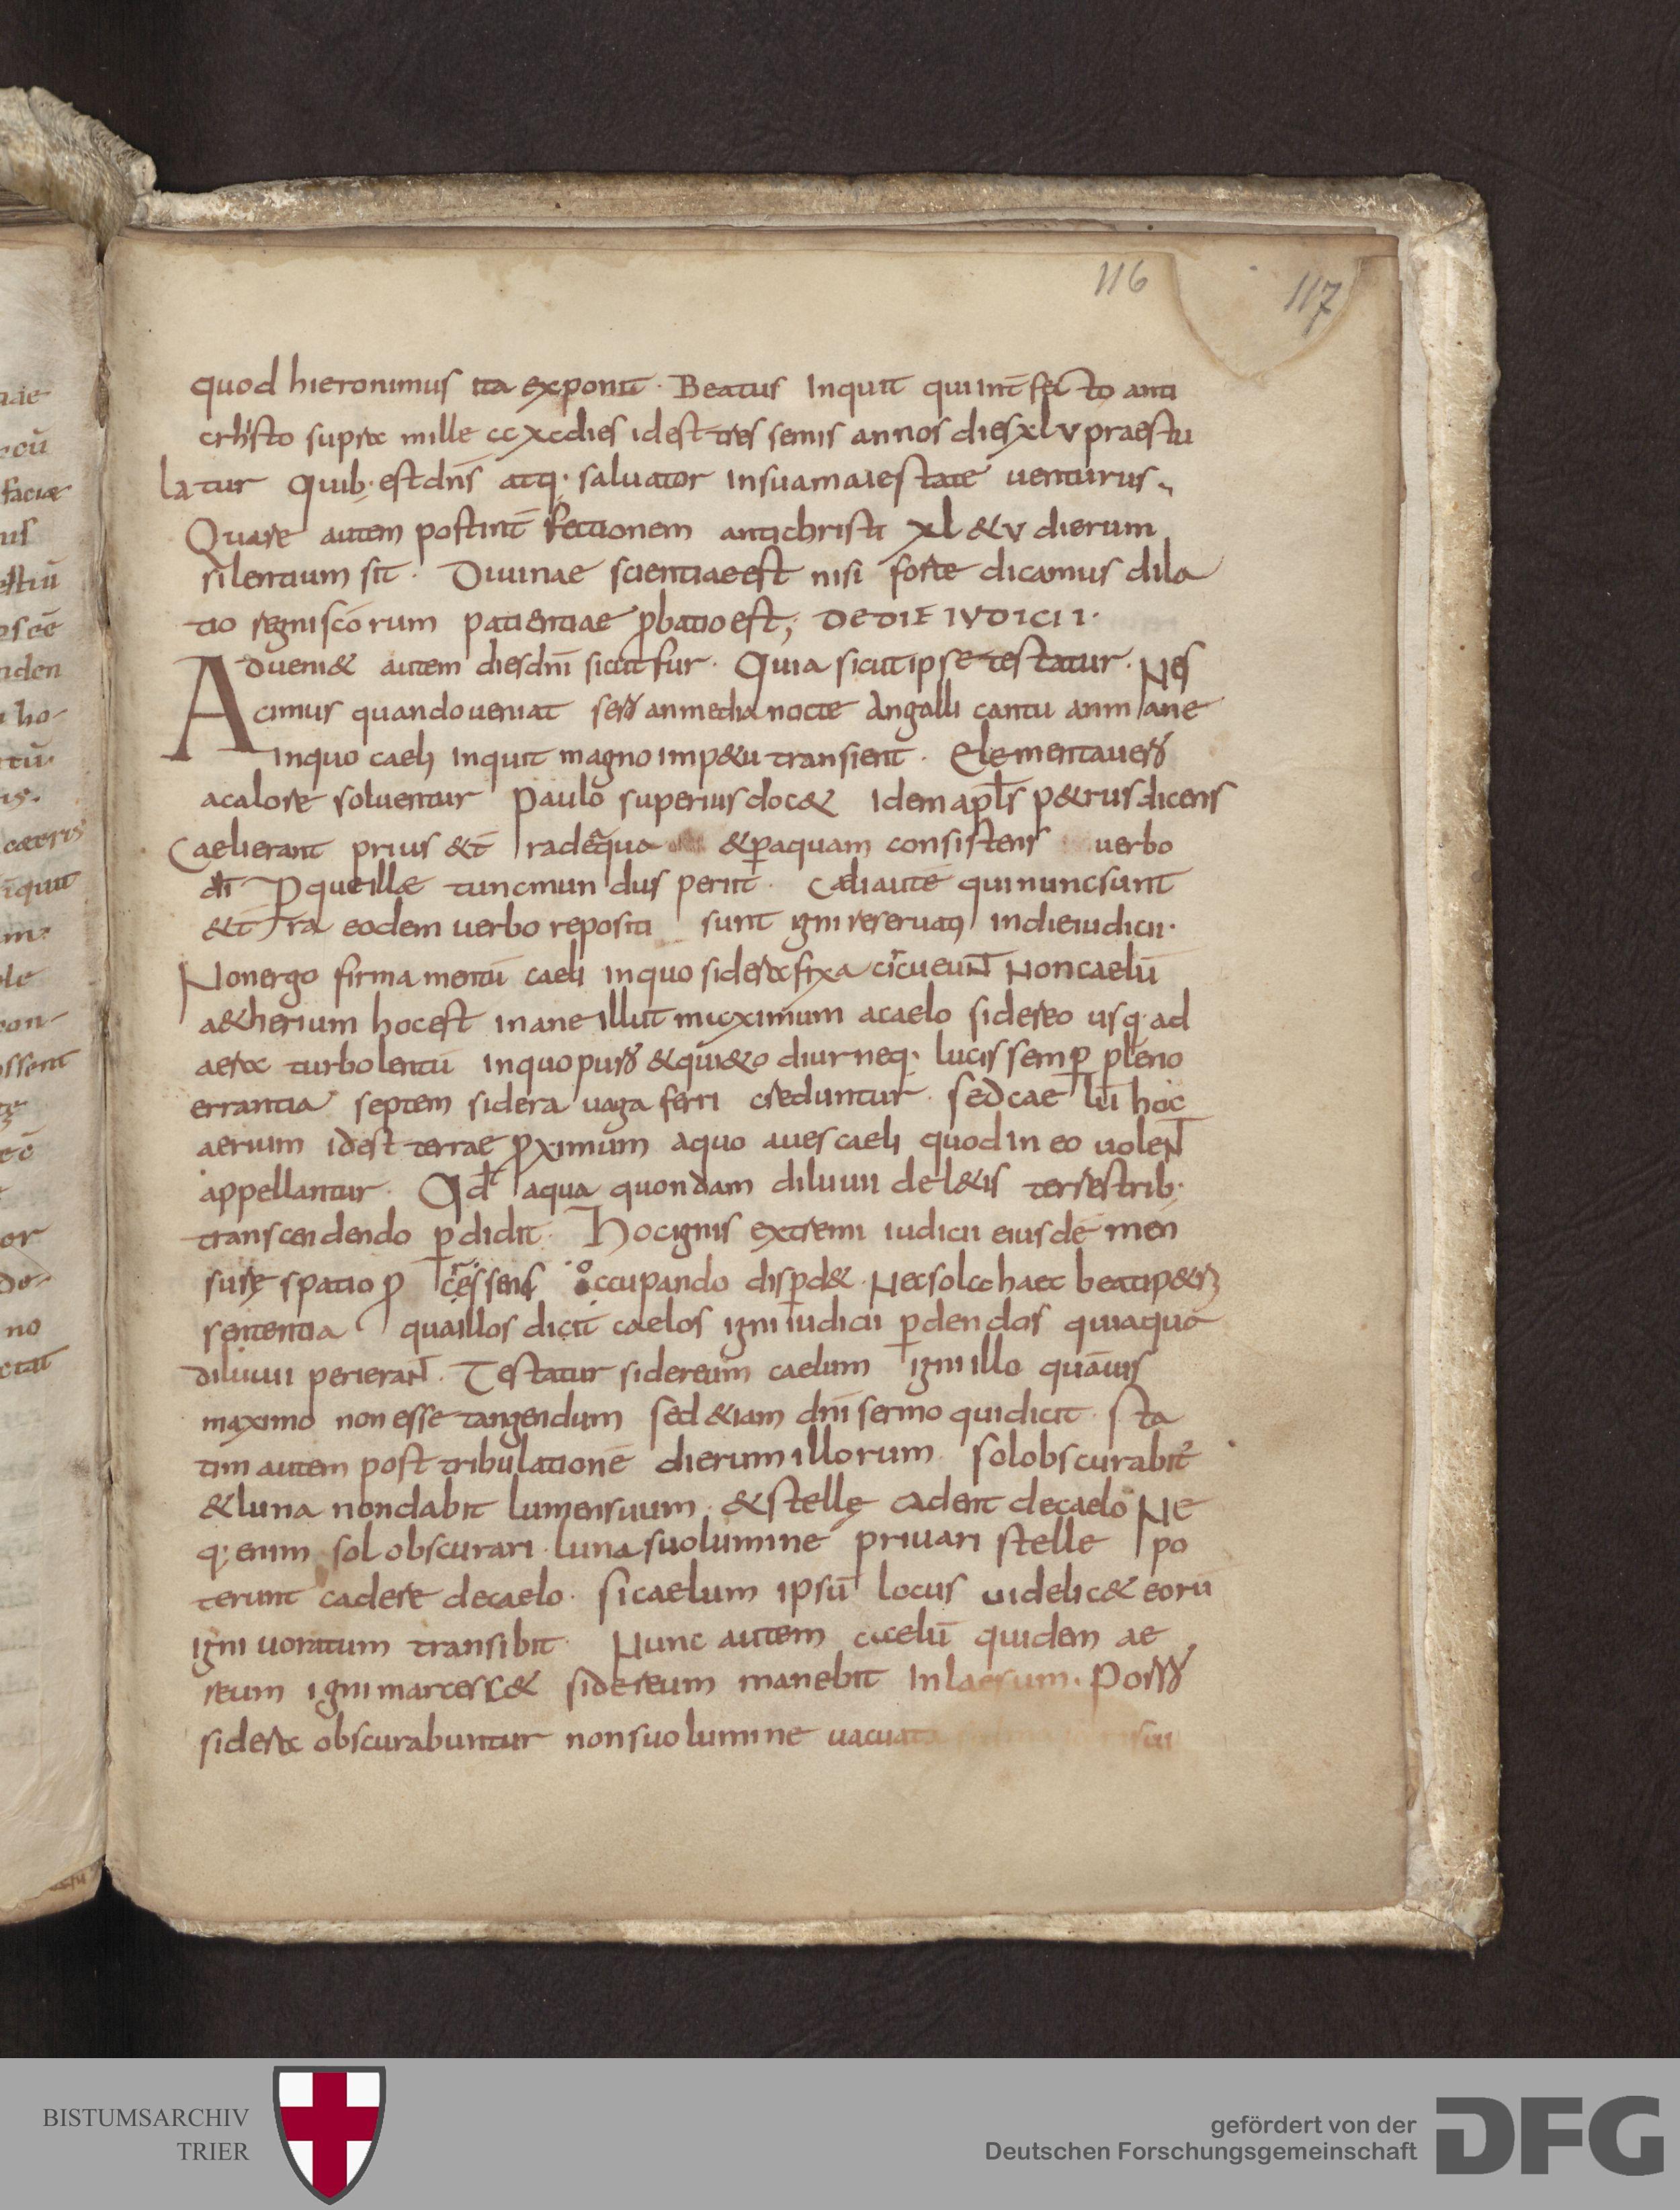 116
117
quod hieronimus ita exponit · Beatus Inquit qui int̄fecto anti
crhisto supra mille ccxcdies idest tres semis annos dies xlv praestu
latur Quib; est dn̄s atq; saluator Insuamaiestate uenturus
Quare autem post int̄fectionem antichristi xl & v dierum
silentium sit · Diuinae scientiae est nisi forte dicamus dila
tio regni scōrum patientiae ꝓbatio est; DE DIE IVDICII ·
Adueni& autem dies dn̄i sicut fur · Quia sicut ipse testatur · Nes
cimus quando ueniat sero an media nocte An galli cantu an mane
In quo caeli inquit magno imp&u transient · Elementa uero
a calore soluentur Paulo superius doc& Idem apl̄s p&rus dicens
Caeli erant prius & t̄ra de aqua & ꝑ aquam consistens uerbo
dī Per que ille tunc mundus periit · Caeli autē qui nunc sunt
& t̄ra eodem uerbo repositi sunt igni reseruati in die iudicii ·
Non ergo firmamentū caeli in quo sidera fixa circueunt Non caelū
a&herium hoc est inane illut maximum a caelo sidereo usq; ad
aera turbolentū in quo puro & qui&o diurneq; lucis semꝑ pleno
errantia septem sidera uaga ferri creduntur · sed caelū hoc
aerium idest terrae ꝓximum a quo aues caeli quod in eo uolent
appellantur · Qd̄ aqua quondam diluuii del&is terrestrib;
transcendendo ꝑdidit · Hoc ignis extremi iudicii eiusdē men
surę spatio ꝓ crescens occupando disꝑd& · Nec solo haec beati p&ri
sententia qua illos dicit caelos igni iudicii ꝑdendos qui aqua
diluuii perierant · Testatur sidereum caelum igni illo quāuis
maximo non esse tangendum sed &iam dn̄i sermo qui dicit · sta
tim autem post tribulationē dierum illorum sol obscurabit̄
& luna non dabit lumen suum · & stellę cadent de caelo Ne
q; enim sol obscurari · luna suo lumine priuari stelle po
terunt cadere de caelo · si caelum ipsū locus uidelic& eorū
igni uoratum transibit · Nunc autem caelū quidem ae
reum igni marcesc& sidereum manebit Inlaesum · Porro
sidera obscurabuntur non suo lumine uacuata
BISTUMSARCHIV
TRIER
gefördert von der
Deutschen Forschungsgemeinschaft
DFG